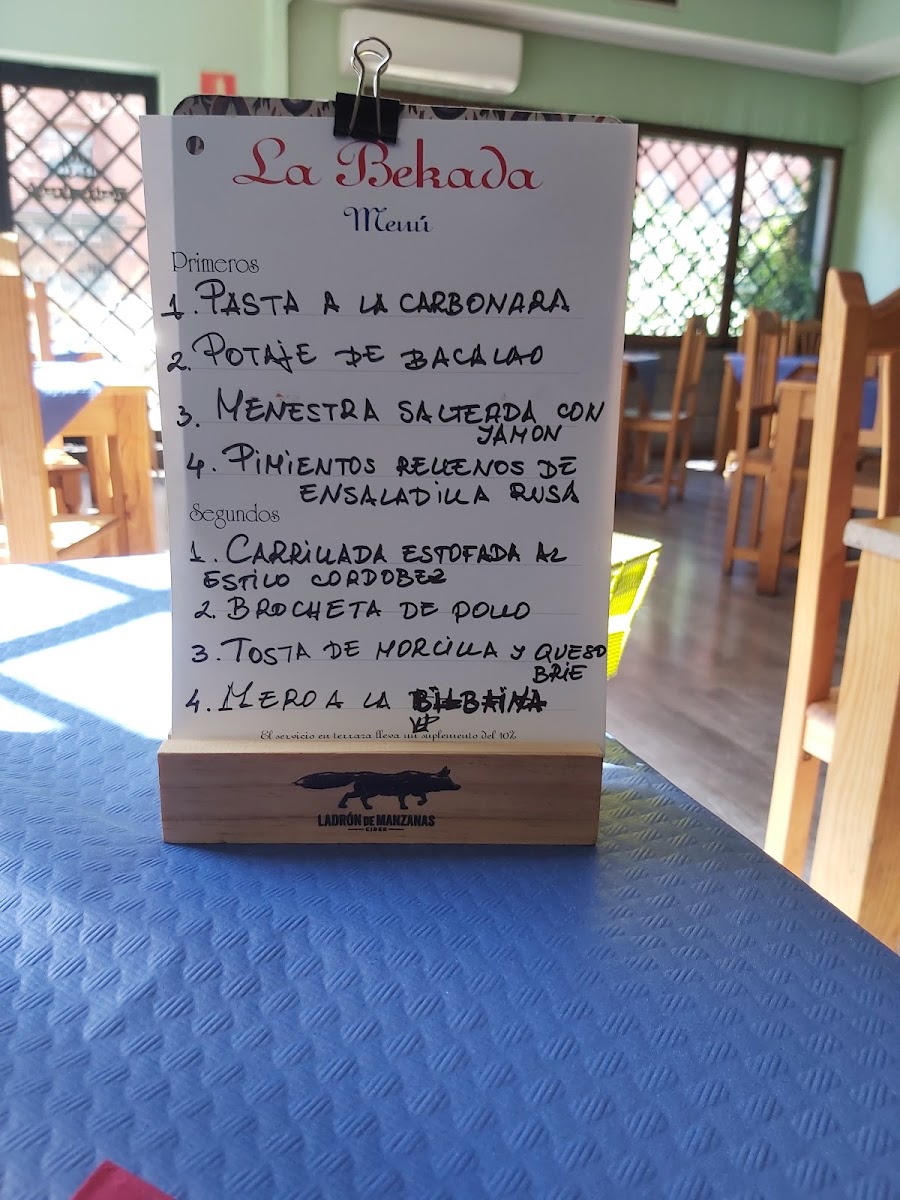 La Bekada
Menú
Primeros
1. PASTA A LA CARBONARA
2. POTAJE DE BACALAO
3. MENESTRA SALTEADA CON
JAMON
4. PIMIENTOS RELLENOS DE
ENSALADILLA RUSA
Segundos
1. CARRILLADA ESTOFADA AL
ESTILO CORDOBEZ
2. BROCHETA DE POLLO
3. TOSTA DE MORCILLA Y QUESO
BRIE
4. MERO A LA BILBAINA
El servicio en terraza lleva un suplemento del 10%
LADRÓN DE MANZANAS
CIDER